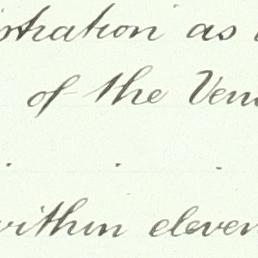 stration as
of the Ven
. . .
within eleven